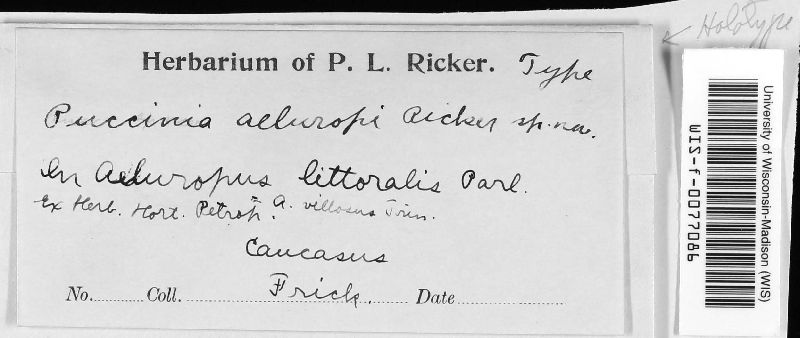 Holotype
Herbarium of P. L. Ricker. Type
Puccinia aeluropi Ricker sp. nov.
On Aeluropus littoralis Parl.
Ex Herb. Hort. Petrop. = A. villosus Trin.
Caucasus
No. Coll. Frick. Date
University of Wisconsin-Madison (WIS)
WIS-f-0077086